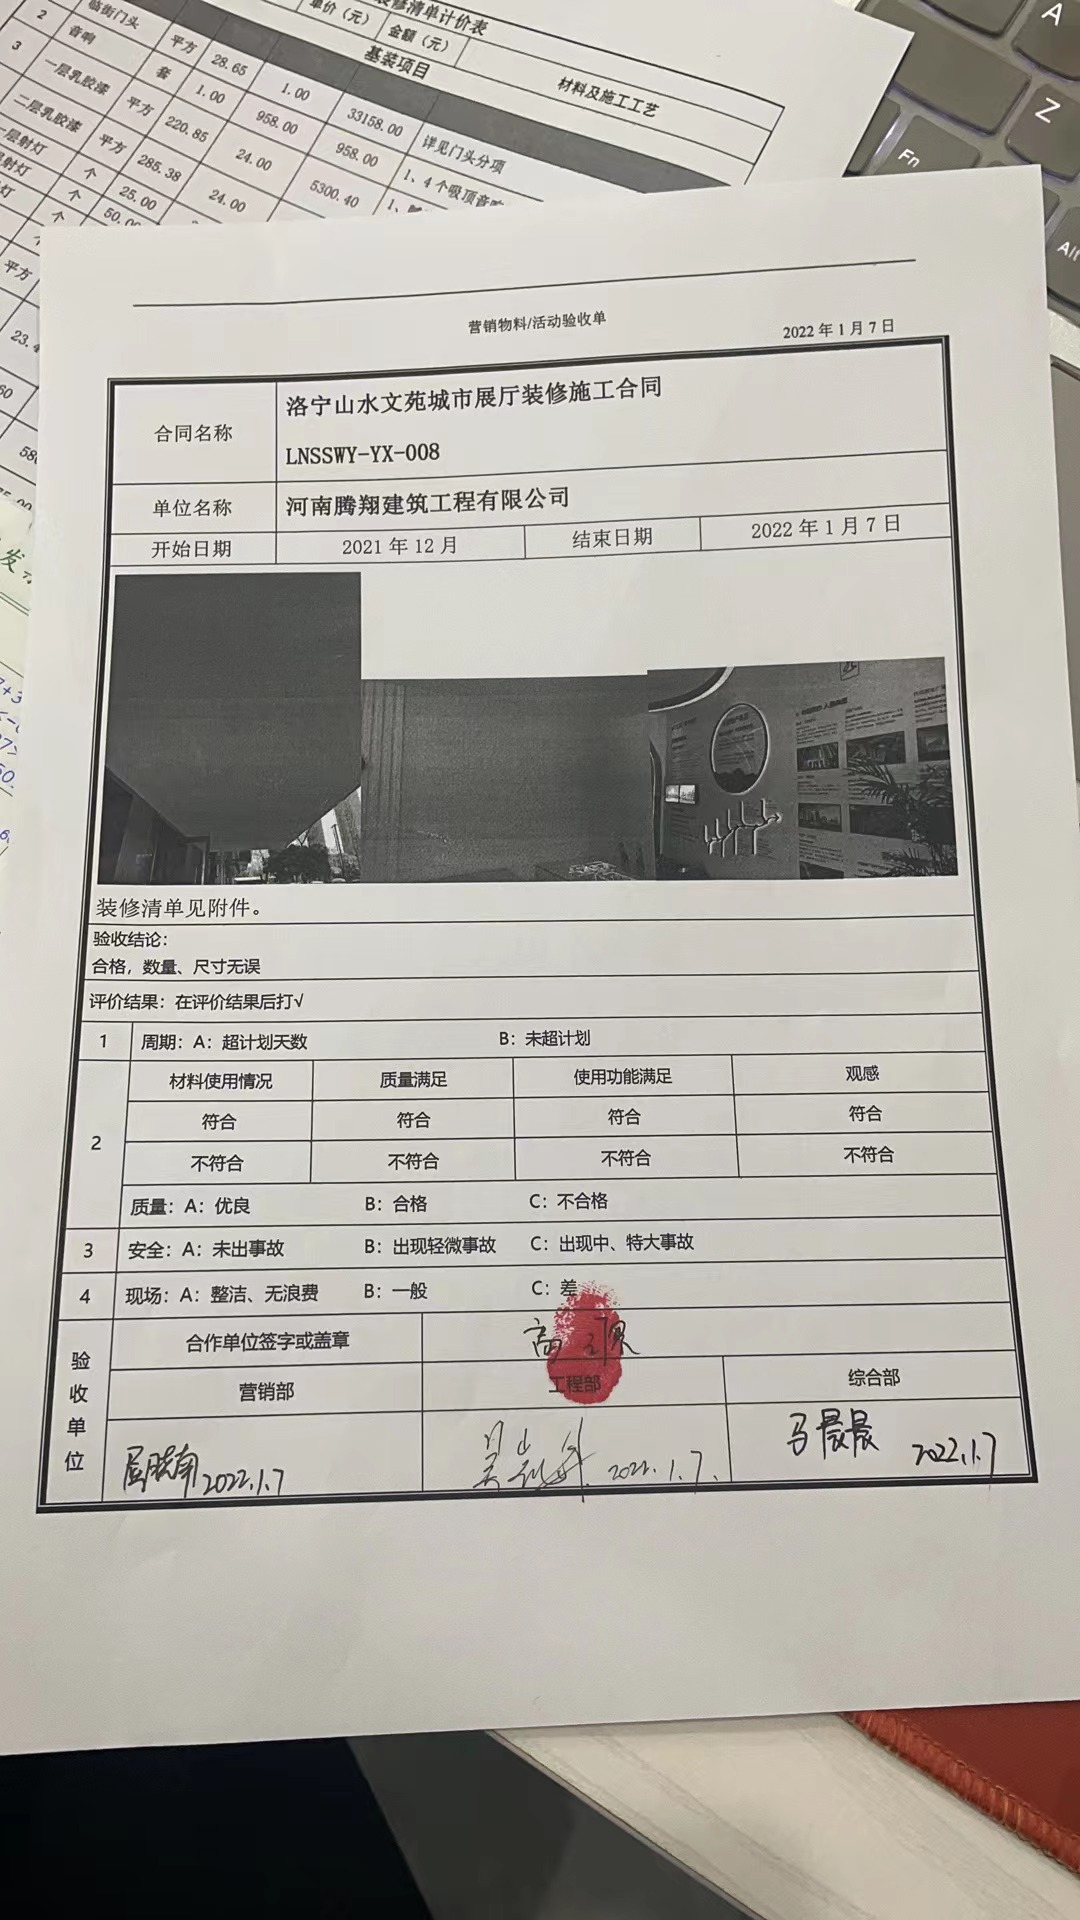 装修清单计价表
单价（元）
金额（元）
材料及施工工艺
基装项目
2 临街门头 平方 28.65 1.00 33158.00 详见门头分项
3 音响 套 1.00 958.00 958.00 1、4个吸顶音响
一层乳胶漆 平方 220.85 24.00 5300.40 1、
二层乳胶漆 平方 285.38 24.00
一层射灯 个 25.00
射灯 个 50.00
灯 个
平方
23.4
Fn
A
Z
Alt
营销物料/活动验收单
2022年1月7日
合同名称
洛宁山水文苑城市展厅装修施工合同
LNSSWY-YX-008
单位名称 河南腾翔建筑工程有限公司
开始日期 2021年12月 结束日期 2022年1月7日
装修清单见附件。
验收结论：
合格，数量、尺寸无误
评价结果：在评价结果后打√
1 周期：A：超计划天数 B：未超计划
2
材料使用情况 质量满足 使用功能满足 观感
符合 符合 符合 符合
不符合 不符合 不符合 不符合
质量：A：优良 B：合格 C：不合格
3 安全：A：未出事故 B：出现轻微事故 C：出现中、特大事故
4 现场：A：整洁、无浪费 B：一般 C：差
验收单位
合作单位签字或盖章
营销部 工程部 综合部
2022.1.7
2022.1.7.
马晨晨 2022.1.7